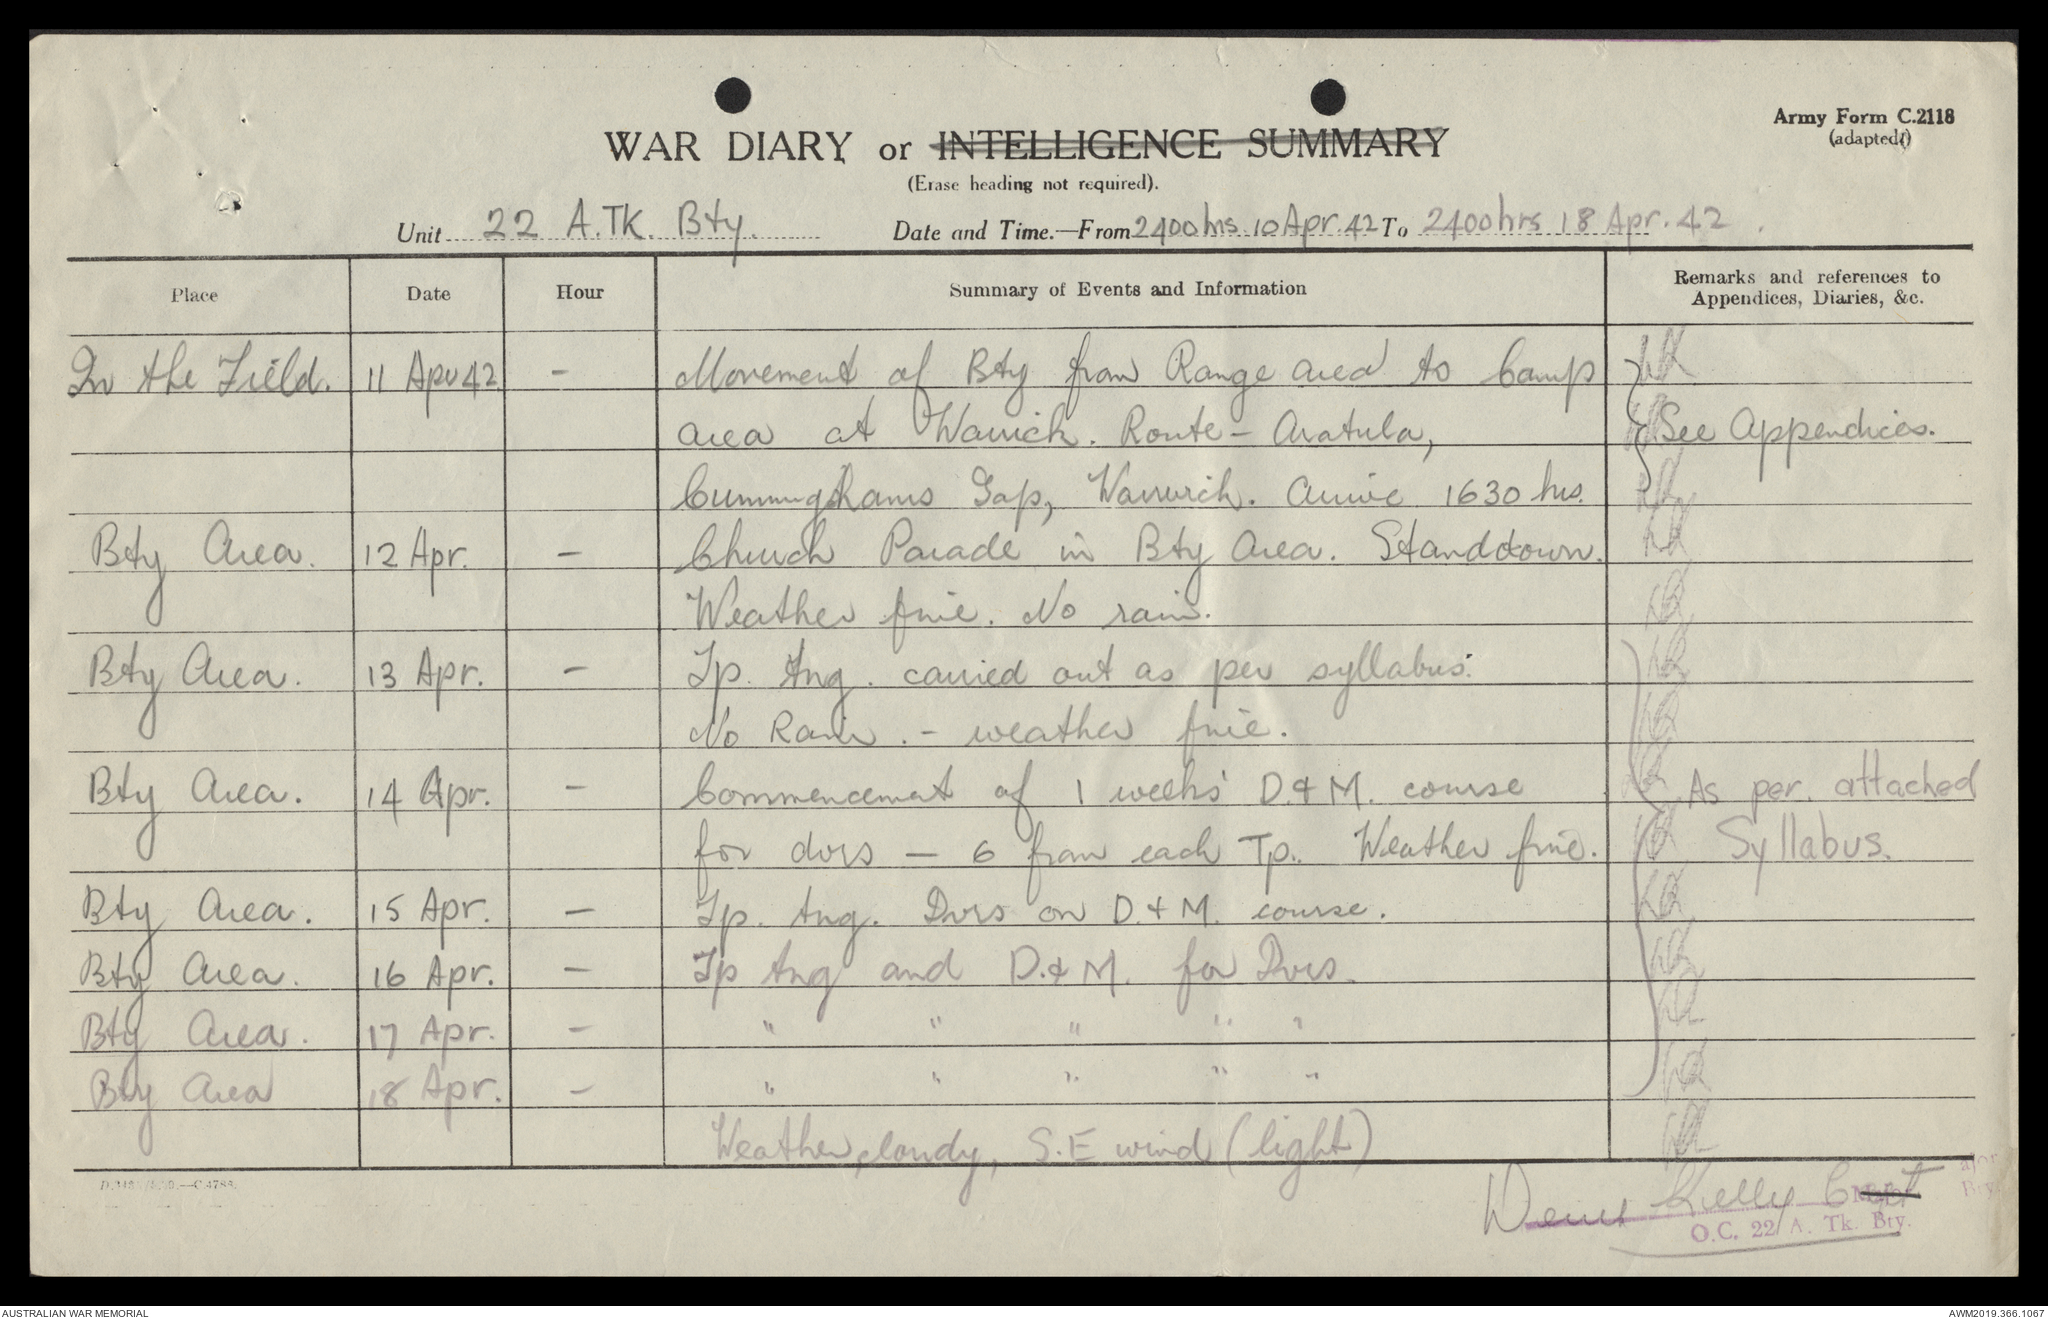 Army Form C.2118
(adapted)
WAR DIARY or INTELLIGENCE SUMMARY
(Erase heading not required).
Unit 22 A.TK. Bty. Date and Time.—From 2400 hrs. 10 Apr. 42 To 2400 hrs 18 Apr. 42.
Place Date Hour Summary of Events and Information Remarks and references to
Appendices, Diaries, &c.
In the Field. 11 Apr 42 — Movement of Bty from Range area to Camp
area at Warwick. Route – Aratula, See Appendices.
Cunninghams Gap, Warwick. Arrive 1630 hrs.
Bty Area. 12 Apr. — Church Parade in Bty Area. Standdown.
Weather fine. No rain.
Bty Area. 13 Apr. — Tp. tng. carried out as per syllabus.
No Rain. – weather fine.
Bty Area. 14 Apr. — Commencement of 1 weeks' D. & M. course As per. attached
for dvrs — 6 from each Tp. Weather fine. Syllabus.
Bty Area. 15 Apr. — Tp. tng. Dvrs on D. & M. course.
Bty Area. 16 Apr. — Tp tng and D. & M. for Dvrs.
Bty Area. 17 Apr. — " " " " "
Bty Area 18 Apr. — " " " " "
Weather, cloudy, S.E wind (light)
Kelly
O.C. 22 A. Tk. Bty.
AUSTRALIAN WAR MEMORIAL AWM2019.366.1067